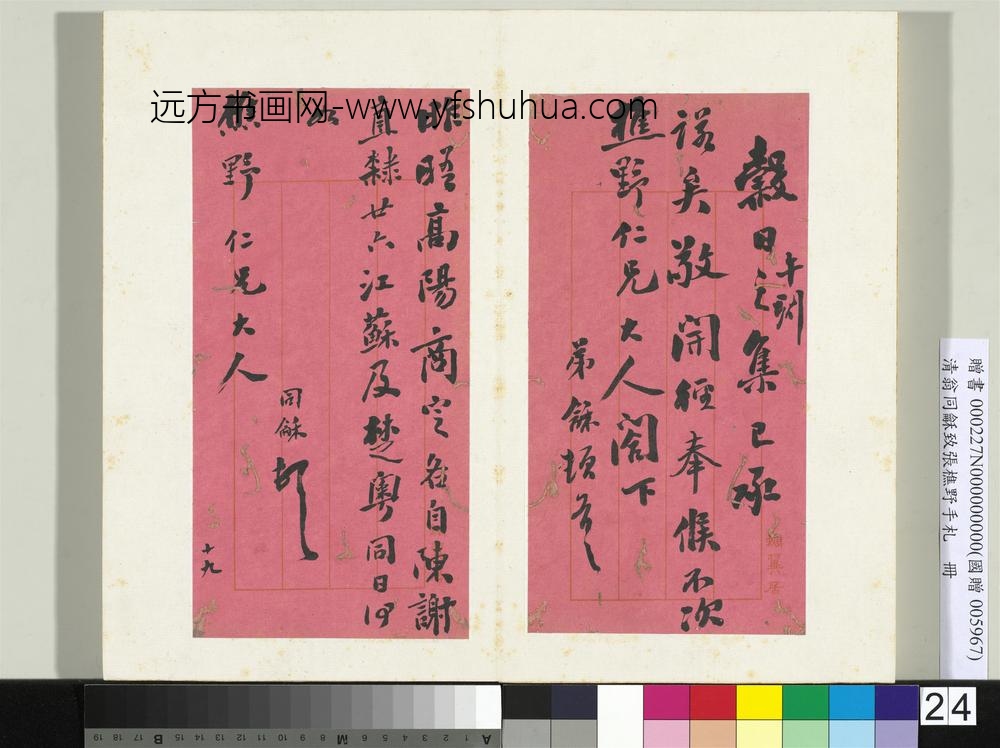 穀日之集已承
午刻
諾矣敬闲徑奉候不次
樵野仁兄大人閣下
弟龢頓首
昨晤高陽商定各自陳謝
直隸廿六江蘇及楚粵同日何
樵野仁兄大人
同龢
十九
远方书画网-www.yfshuhua.com
贈書 000227N000000000(國贈 005967)
清翁同龢致張樵野手札 冊
24
19 18 17 16 15 14 13 12 11 10 9 8 7 6 5 4 3 2 1
B M A